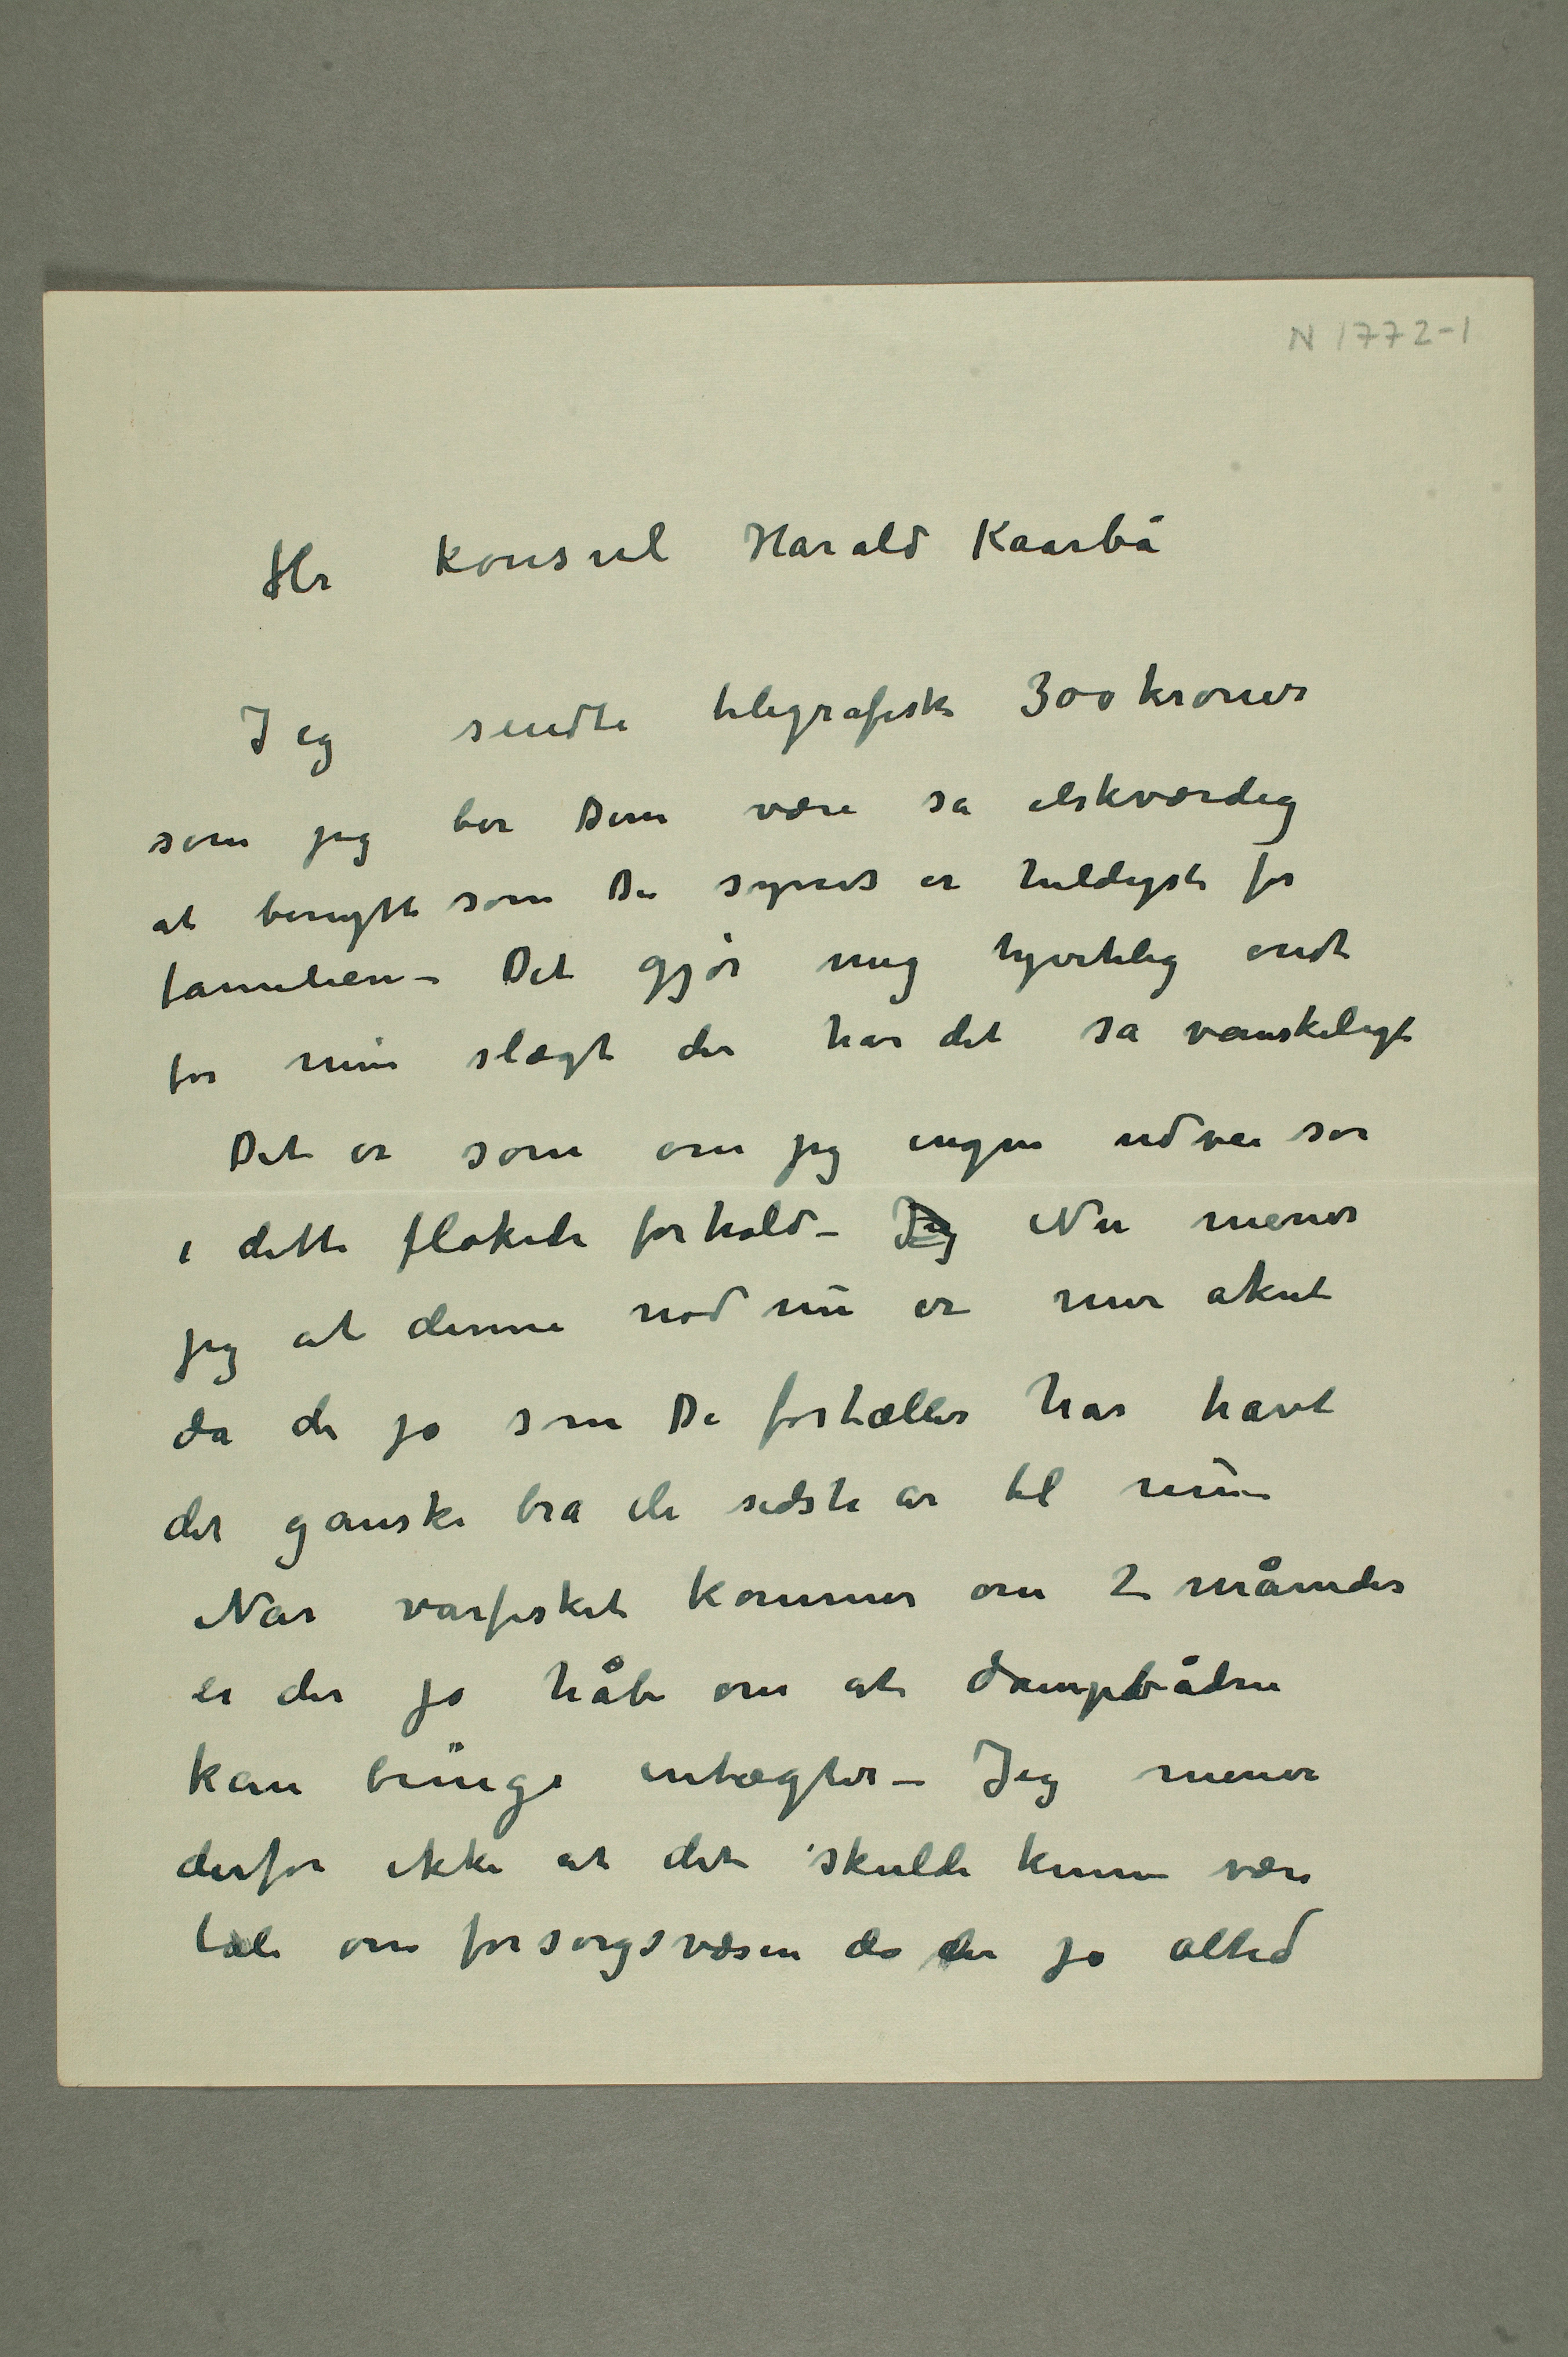 N 1772-1
Hr konsul Harald Kaarbå
Jeg sendte telegrafisk 300 kroner
som jeg ber Dem være så elskværdig
at benytte som De synes er heldigst for
familien – Det gjør mig hjertelig ondt
for min slægt der har det så vanskeligt
Det er som om jeg ingen udvei ser
i dette flokede forhold – Jeg Nu mener
jeg at denne nød nu er mer akut
da de jo som De fortæller har havt
det ganske bra de sidste år til nu –
Når vårfisket kommer om 2 måneder
er der jo håb om at dampbåden
kan bringe intægter – Jeg mener
derfor ikke at det skulde kunne være
tale om forsorgsvæsen da der jo altid